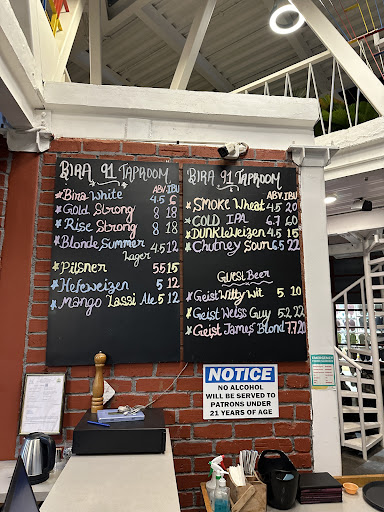 BIRA 91 TAPROOM
ABV. IBU
Bira White 4.5 6
Gold Strong 8 18
Rise Strong 8 18
Blonde Summer Lager 4.5 12
Pilsner 5.5 15
Hefeweizen 5 12
Mango Lassi Ale 5 12
BIRA 91 TAPROOM
ABV. IBU
SMOKE Wheat 4.5 20
COLD IPA 6.7 60
DUNKLeWeizen 4.5 15
Chutney Sour 6.5 22
GUEST Beer
Geist Witty Wit 5 10
Geist Weiss Guy 5.2 22
Geist James Blond 7.7 20
NOTICE
NO ALCOHOL
WILL BE SERVED TO
PATRONS UNDER
21 YEARS OF AGE